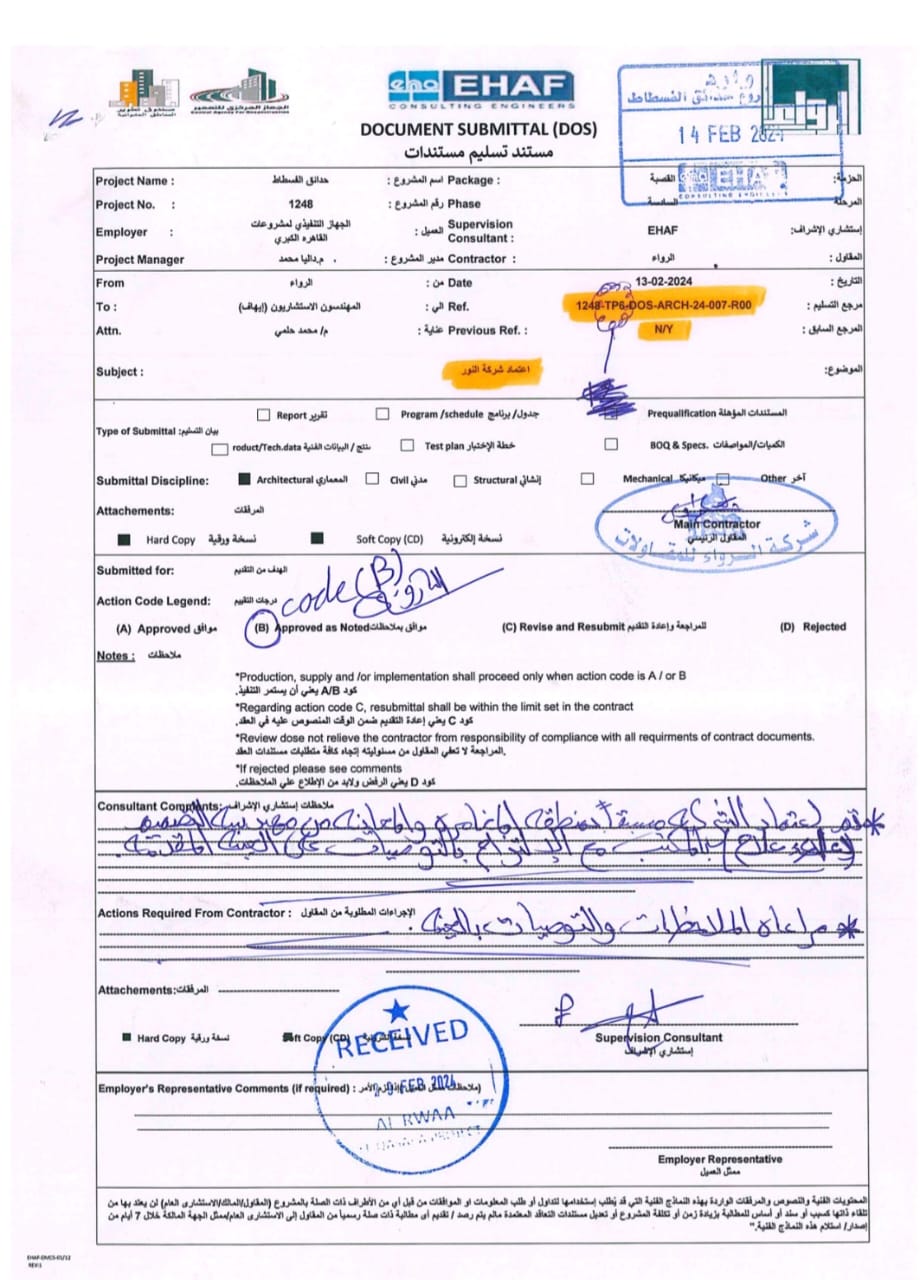 صندوق تطوير
المناطق العشوائية
الجهاز المركزي للتعمير
Central Agency For Reconstruction
EHAF
CONSULTING ENGINEERS
حدائق الفسطاط
14 FEB 2024
EHAF
CONSULTING ENGINEERS
DOCUMENT SUBMITTAL (DOS)
مستند تسليم مستندات
Project Name : حدائق الفسطاط اسم المشروع : Package : القصبة الحزمة:
Project No. : 1248 رقم المشروع : Phase السادسة المرحلة
Employer : الجهاز التنفيذي لمشروعات القاهره الكبري العميل : Supervision Consultant : EHAF إستشاري الإشراف:
Project Manager م.داليا محمد مدير المشروع : Contractor : الرواء المقاول :
From الرواء من : Date 13-02-2024 التاريخ :
To : المهندسون الاستشاريون (إيهاف) الي : Ref. 1248-TP6-DOS-ARCH-24-007-R00 مرجع التسليم :
Attn. م/ محمد حلمي عناية : Previous Ref. : N/Y المرجع السابق :
Subject : اعتماد شركة النور الموضوع:
Report تقرير Program /schedule جدول/ برنامج Prequalification المستندات المؤهلة
Type of Submittal: بيان التسليم
roduct/Tech.data منتج / البيانات الفنية Test plan خطة الإختبار BOQ & Specs. الكميات/المواصفات
Submittal Discipline: Architectural المعماري Civil مدني Structural إنشائي Mechanical ميكانيكا Other آخر
Attachements: المرفقات
Main Contractor
المقاول الرئيسي
شركة الرواء للمقاولات
Hard Copy نسخة ورقية Soft Copy (CD) نسخة إلكترونية
Submitted for: الهدف من التقديم
code (B)
Action Code Legend: درجات التقييم
(A) Approved موافق (B) Approved as Noted موافق بملاحظات (C) Revise and Resubmit للمراجعة وإعادة التقديم (D) Rejected
Notes : ملاحظات
*Production, supply and /or implementation shall proceed only when action code is A / or B
كود A/B يعني أن يستمر التنفيذ.
*Regarding action code C, resubmittal shall be within the limit set in the contract
كود C يعني إعادة التقديم ضمن الوقت المنصوص عليه في العقد.
*Review dose not relieve the contractor from responsibility of compliance with all requirments of contract documents.
المراجعة لا تعفي المقاول من مسئوليته إتجاه كافة متطلبات مستندات العقد.
*If rejected please see comments
كود D يعني الرفض ولابد من الإطلاع علي الملاحظات.
Consultant Comments: ملاحظات إستشاري الإشراف:
* تم إعتماد الشركة والمعاينه من مهندسة التصميم
بالمكتب مع الإلتزام بالتوصيات على العينه المقدمة.
Actions Required From Contractor : الإجراءات المطلوبة من المقاول
* مراعاة الملاحظات والتوصيات بالعينه.
Attachements: المرفقات
Hard Copy نسخة ورقية Soft Copy (CD)
Supervision Consultant
إستشاري الإشراف
RECEIVED
FEB 2024
AL RWAA
Employer's Representative Comments (if required) :
Employer Representative
ممثل العميل
المحتويات الفنية والنصوص والمرفقات الواردة بهذه النماذج الفنية التي قد يُطلب إستخدامها لتداول أو طلب المعلومات او الموافقات من قبل أي من الأطراف ذات الصلة بالمشروع (المقاول/المالك/الاستشارى العام) لن يعتد بها من
تلقاء ذاتها كسبب أو سند أو أساس للمطالبة بزيادة زمن أو تكلفة المشروع أو تعديل مستندات التعاقد المعتمدة مالم يتم رصد / تقديم أى مطالبة ذات صلة رسمياً من المقاول إلى الاستشارى العام/ممثل الجهة المالكة خلال 7 أيام من
إصدار/ استلام هذه النماذج الفنية."
EHAF-DMCS-01/12
REV:1